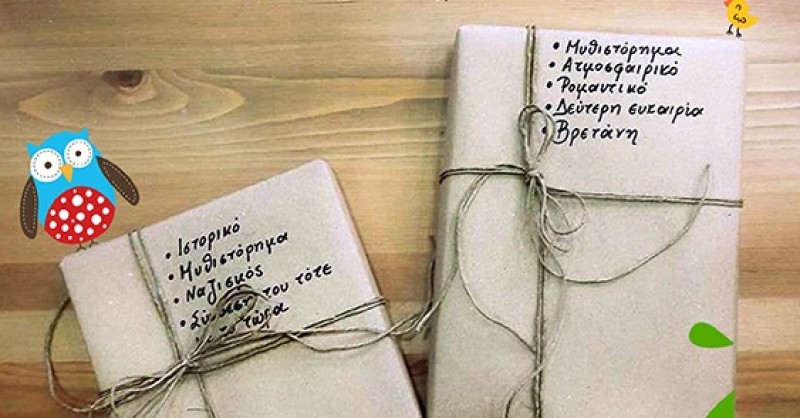 • Ιστορικό
• Μυθιστόρημα
• Ναζισμός
του τότε
τώρα
• Μυθιστόρημα
• Ατμοσφαιρικό
• Ρομαντικό
• Δεύτερη ευκαιρία
• Βρετάνη